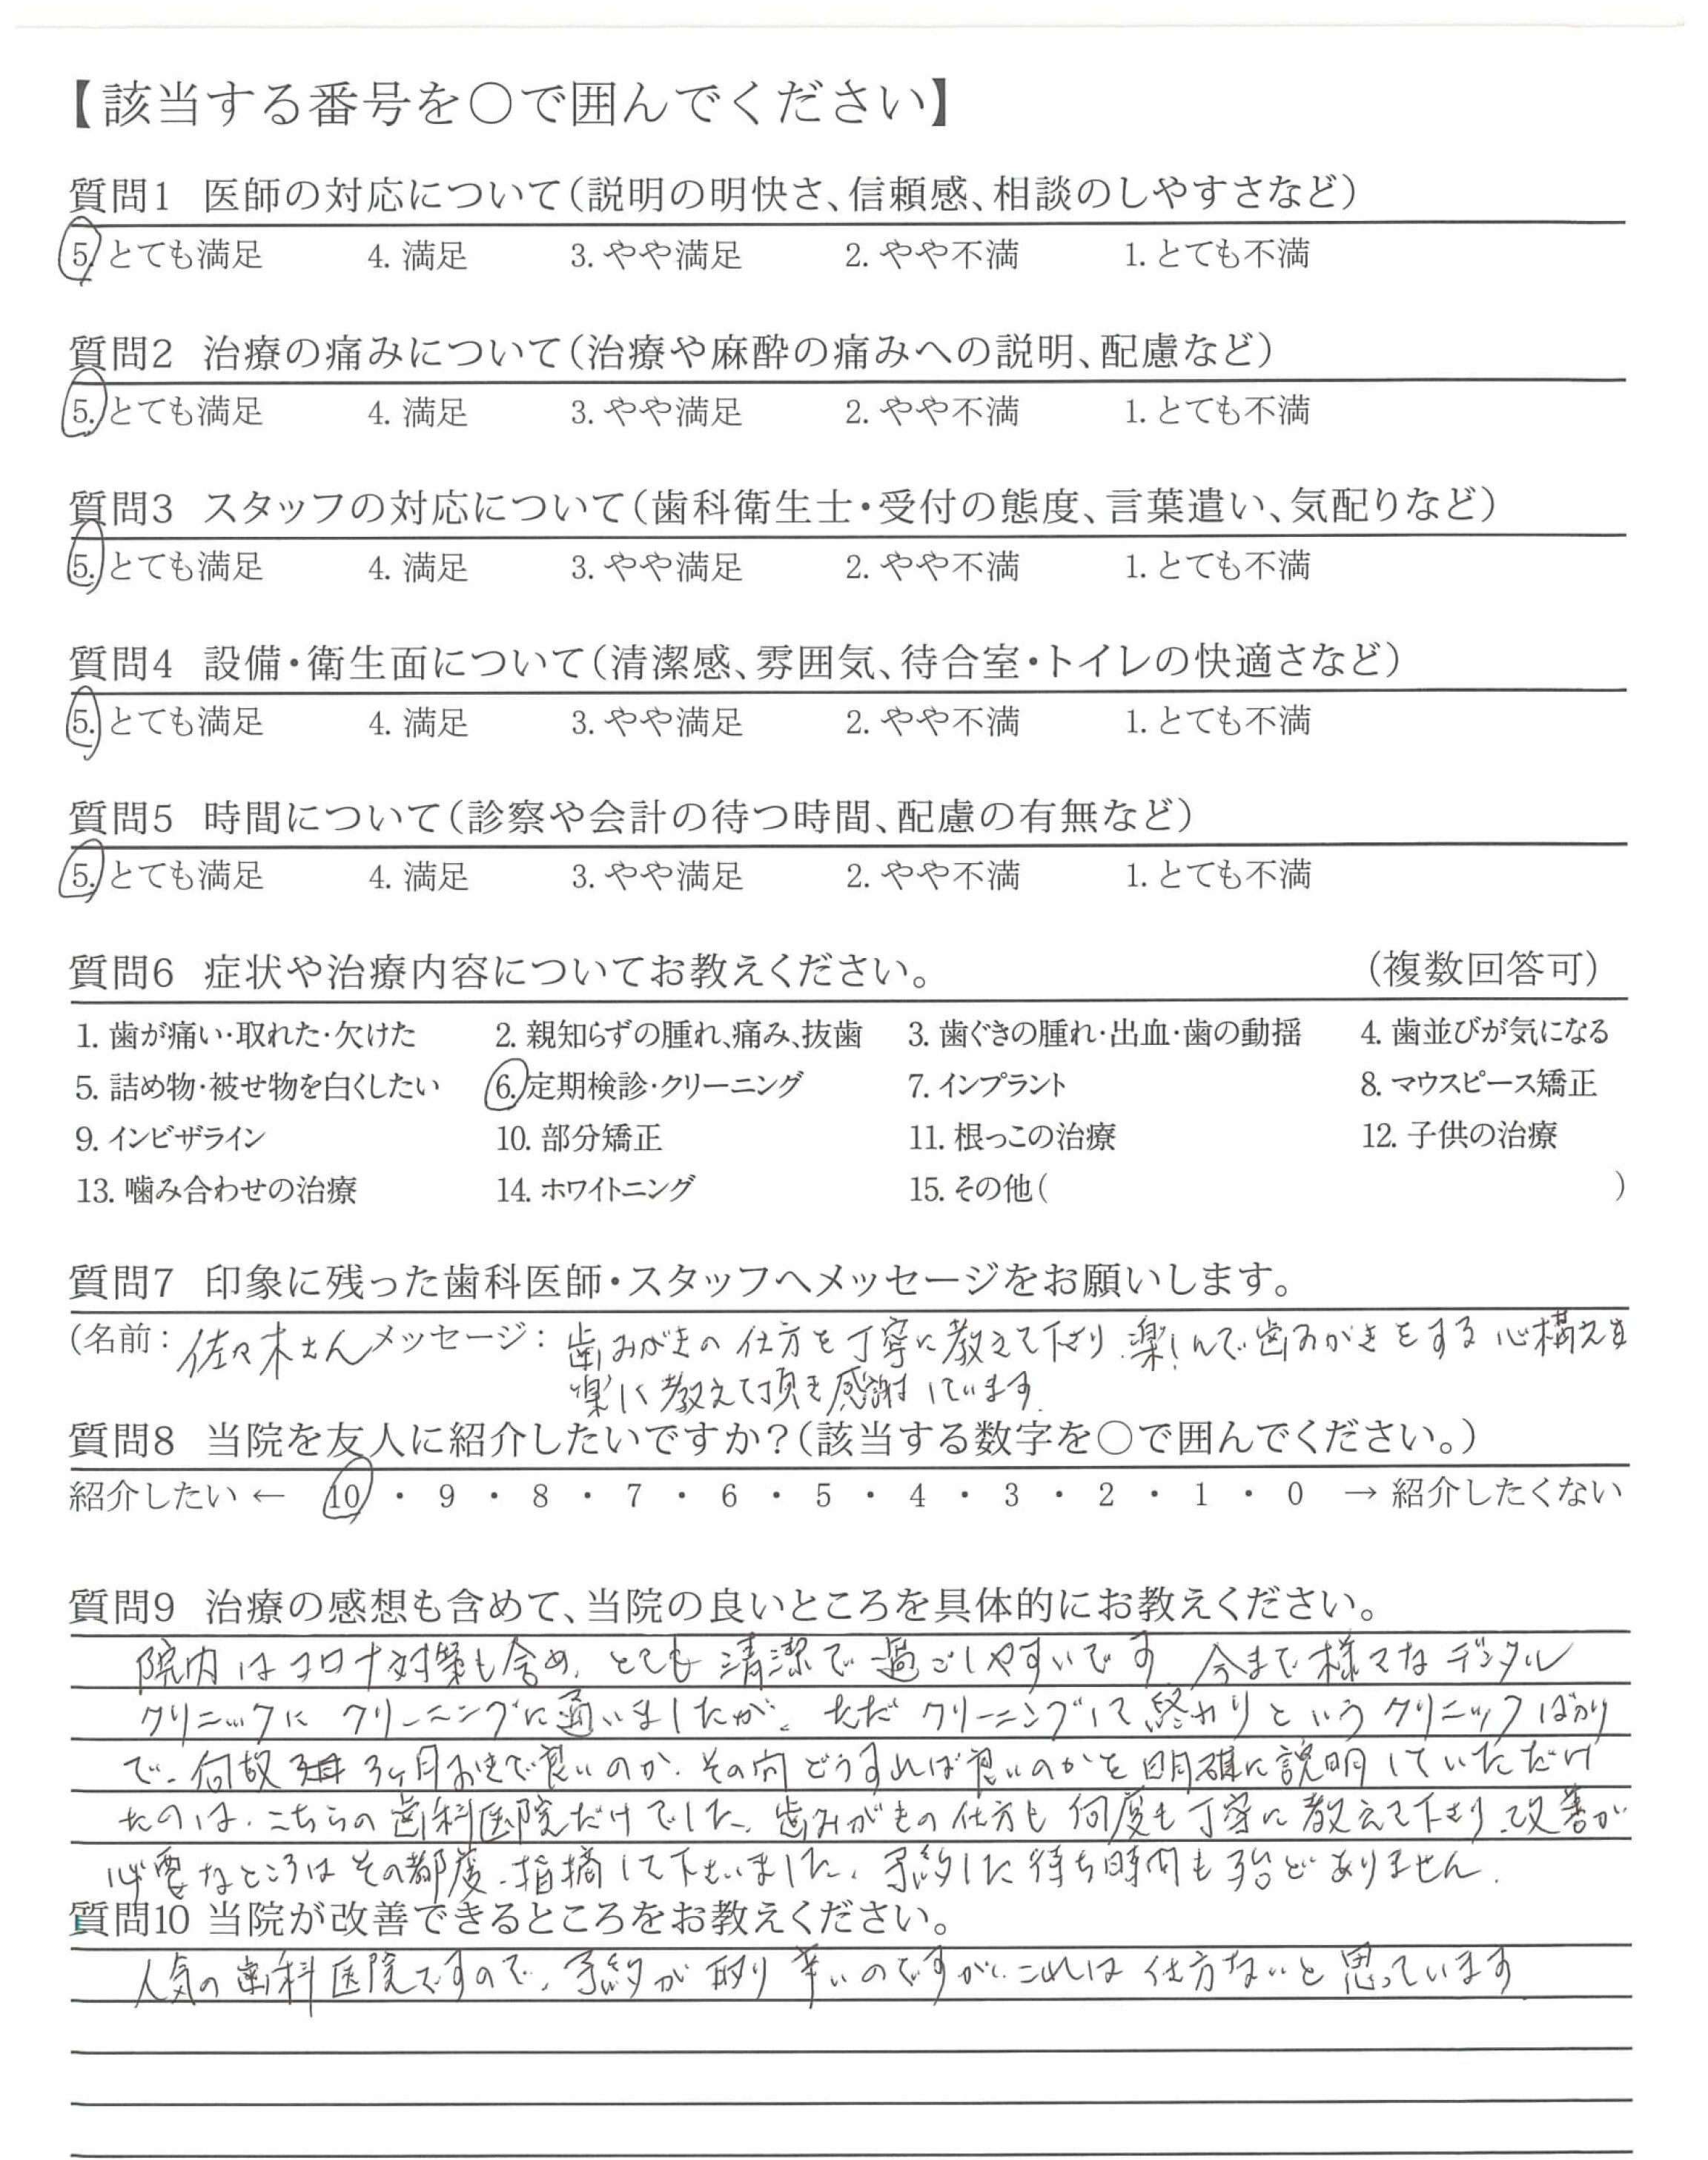 【該当する番号を○で囲んでください】
質問1 医師の対応について(説明の明快さ、信頼感、相談のしやすさなど)
5. とても満足 4. 満足 3. やや満足 2. やや不満 1. とても不満
質問2 治療の痛みについて(治療や麻酔の痛みへの説明、配慮など)
5. とても満足 4. 満足 3. やや満足 2. やや不満 1. とても不満
質問3 スタッフの対応について(歯科衛生士・受付の態度、言葉遣い、気配りなど)
5. とても満足 4. 満足 3. やや満足 2. やや不満 1. とても不満
質問4 設備・衛生面について(清潔感、雰囲気、待合室・トイレの快適さなど)
5. とても満足 4. 満足 3. やや満足 2. やや不満 1. とても不満
質問5 時間について(診察や会計の待つ時間、配慮の有無など)
5. とても満足 4. 満足 3. やや満足 2. やや不満 1. とても不満
質問6 症状や治療内容についてお教えください。 (複数回答可)
1. 歯が痛い・取れた・欠けた 2. 親知らずの腫れ、痛み、抜歯 3. 歯ぐきの腫れ・出血・歯の動揺 4. 歯並びが気になる
5. 詰め物・被せ物を白くしたい 6. 定期検診・クリーニング 7. インプラント 8. マウスピース矯正
9. インビザライン 10. 部分矯正 11. 根っこの治療 12. 子供の治療
13. 噛み合わせの治療 14. ホワイトニング 15. その他( )
質問7 印象に残った歯科医師・スタッフへメッセージをお願いします。
(名前: 佐々木さん メッセージ: 歯みがきの仕方を丁寧に教えて下さり、楽しんで歯みがきをする心構えを
楽に教えて頂き感謝しています。
質問8 当院を友人に紹介したいですか?(該当する数字を○で囲んでください。)
紹介したい ← 10 ・ 9 ・ 8 ・ 7 ・ 6 ・ 5 ・ 4 ・ 3 ・ 2 ・ 1 ・ 0 → 紹介したくない
質問9 治療の感想も含めて、当院の良いところを具体的にお教えください。
院内はコロナ対策も含め、とても清潔で過ごしやすいです。今まで様々なデンタル
クリニックにクリーニングに通いましたが、ただクリーニングして終わりというクリニックばかり
で、何故3ヶ月おきで良いのか、その間どうすれば良いのかを明確に説明していただけ
たのは、こちらの歯科医院だけでした。歯みがきの仕方も何度も丁寧に教えて下さり、改善が
必要なところはその都度、指摘して下さいました。予約した待ち時間も殆どありません。
質問10 当院が改善できるところをお教えください。
人気の歯科医院ですので、予約が取り辛いのですが、これは仕方ないと思っています。